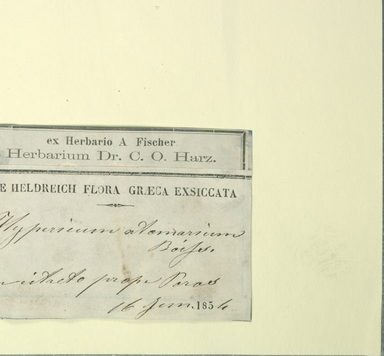 ex Herbario A Fischer
Herbarium Dr. C. O. Harz.
E HELDREICH FLORA GRÆCA EXSICCATA
Hypericum atomarium
Boiss.
prope Poros
16 Jun. 1854